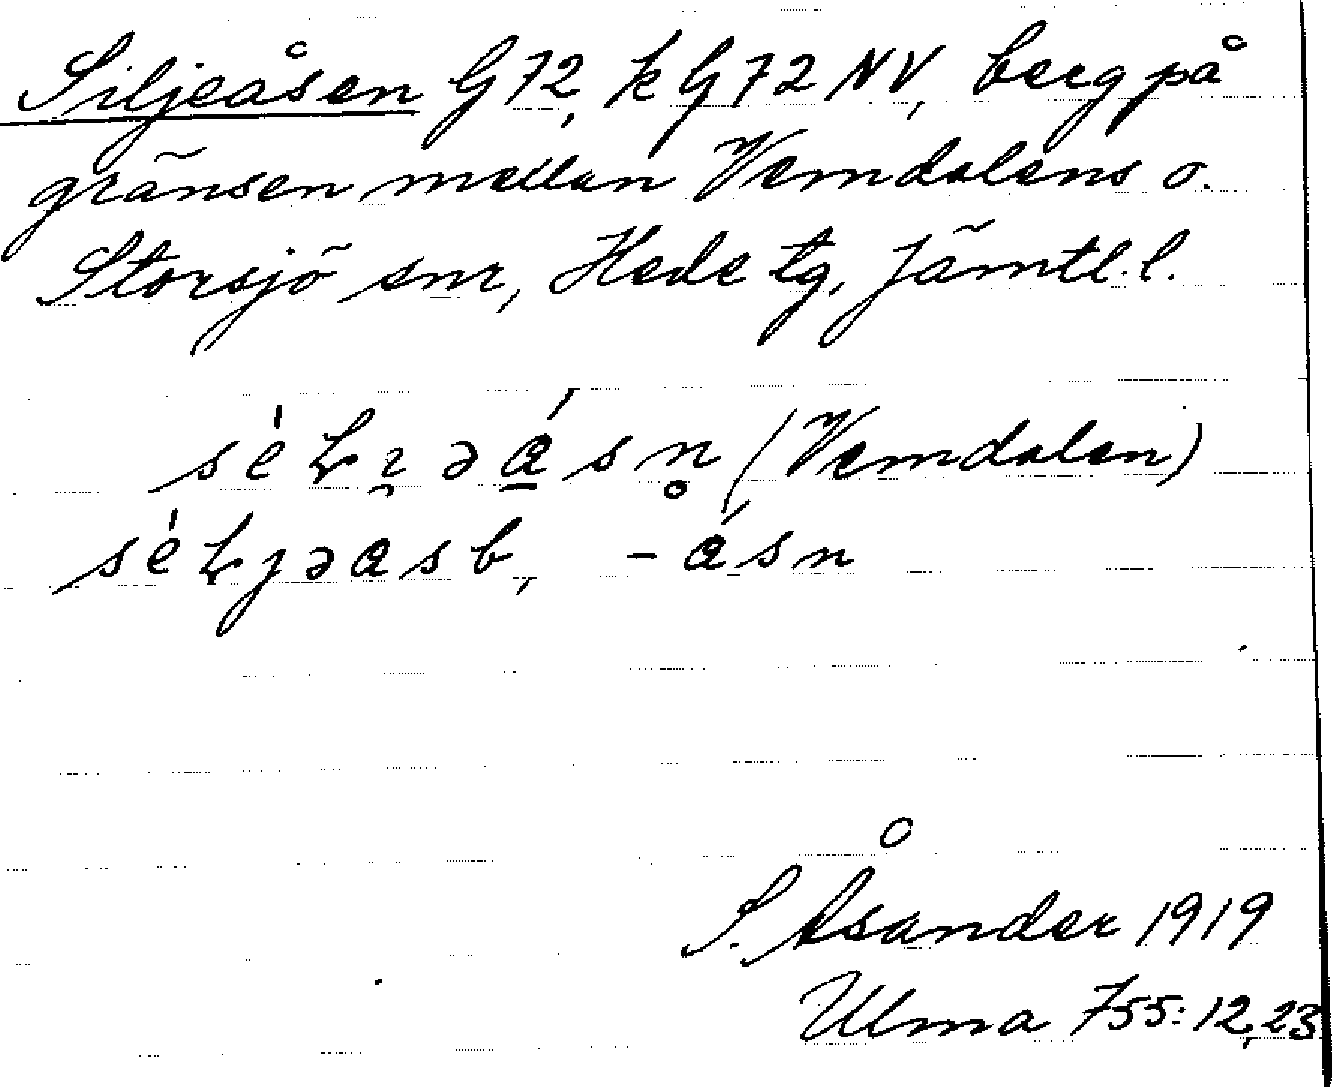 Siljeåsen G72, k G72 NV, berg på
gränsen mellan Vemdalens o.
Storsjö snr, Hede tg, Jämtl. l.
(Vemdalen)
S. Åsander 1919
Ulma 755: 12, 23